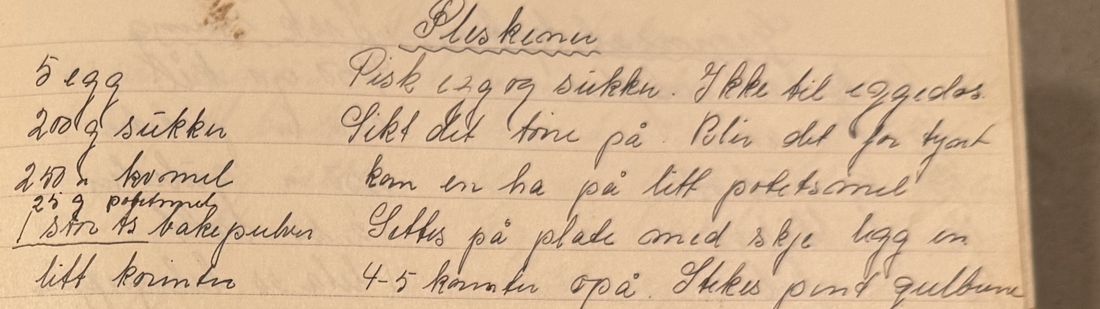 Pleskener
5 egg
200 g sukker
250 " hvmel
25 g potetsmel
1 stor ts bakepulver
litt korinter
Pisk egg og sukker. Ikke til eggedos
Sikt det tørre på. Blir det for tynt
kan en ha på litt potetsmel
Settes på plate med skje legg en
4-5 korinter opå. Stekes pent gulbrune